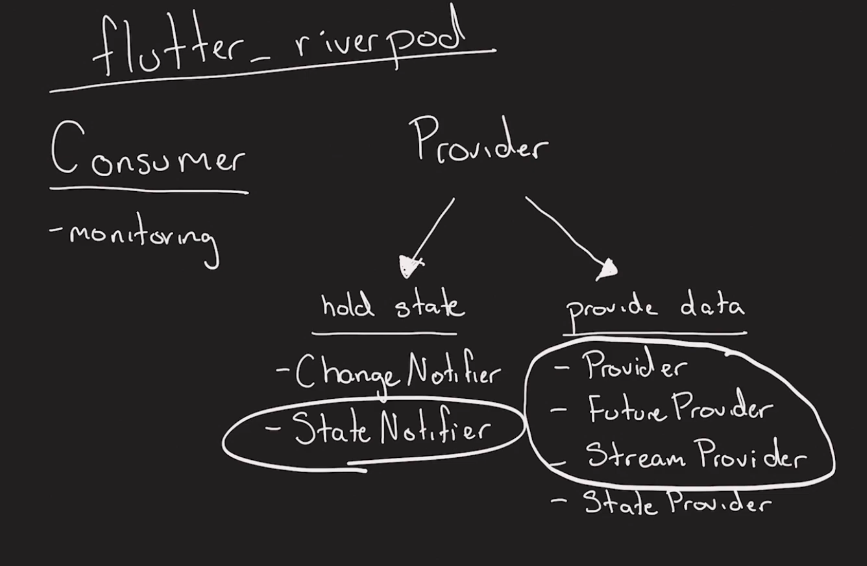 flutter_riverpod
Consumer
-monitoring
Provider
hold state
- ChangeNotifier
- StateNotifier
provide data
- Provider
- FutureProvider
- StreamProvider
- StateProvider